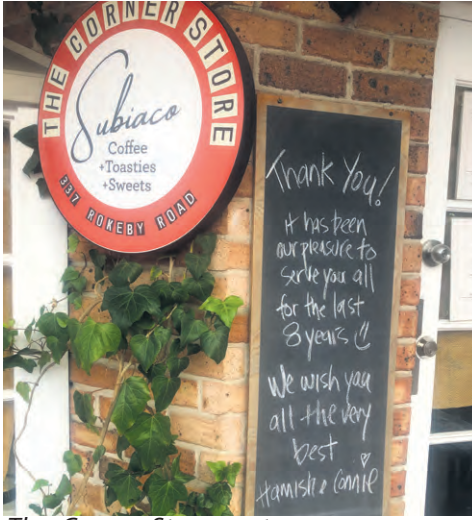 THE CORNER STORE
Subiaco
Coffee
+Toasties
+Sweets
337 ROKEBY ROAD
Thank You!
it has been
our pleasure to
serve you all
for the last
8 years
We wish you
all the very
best
Hamish & Connie